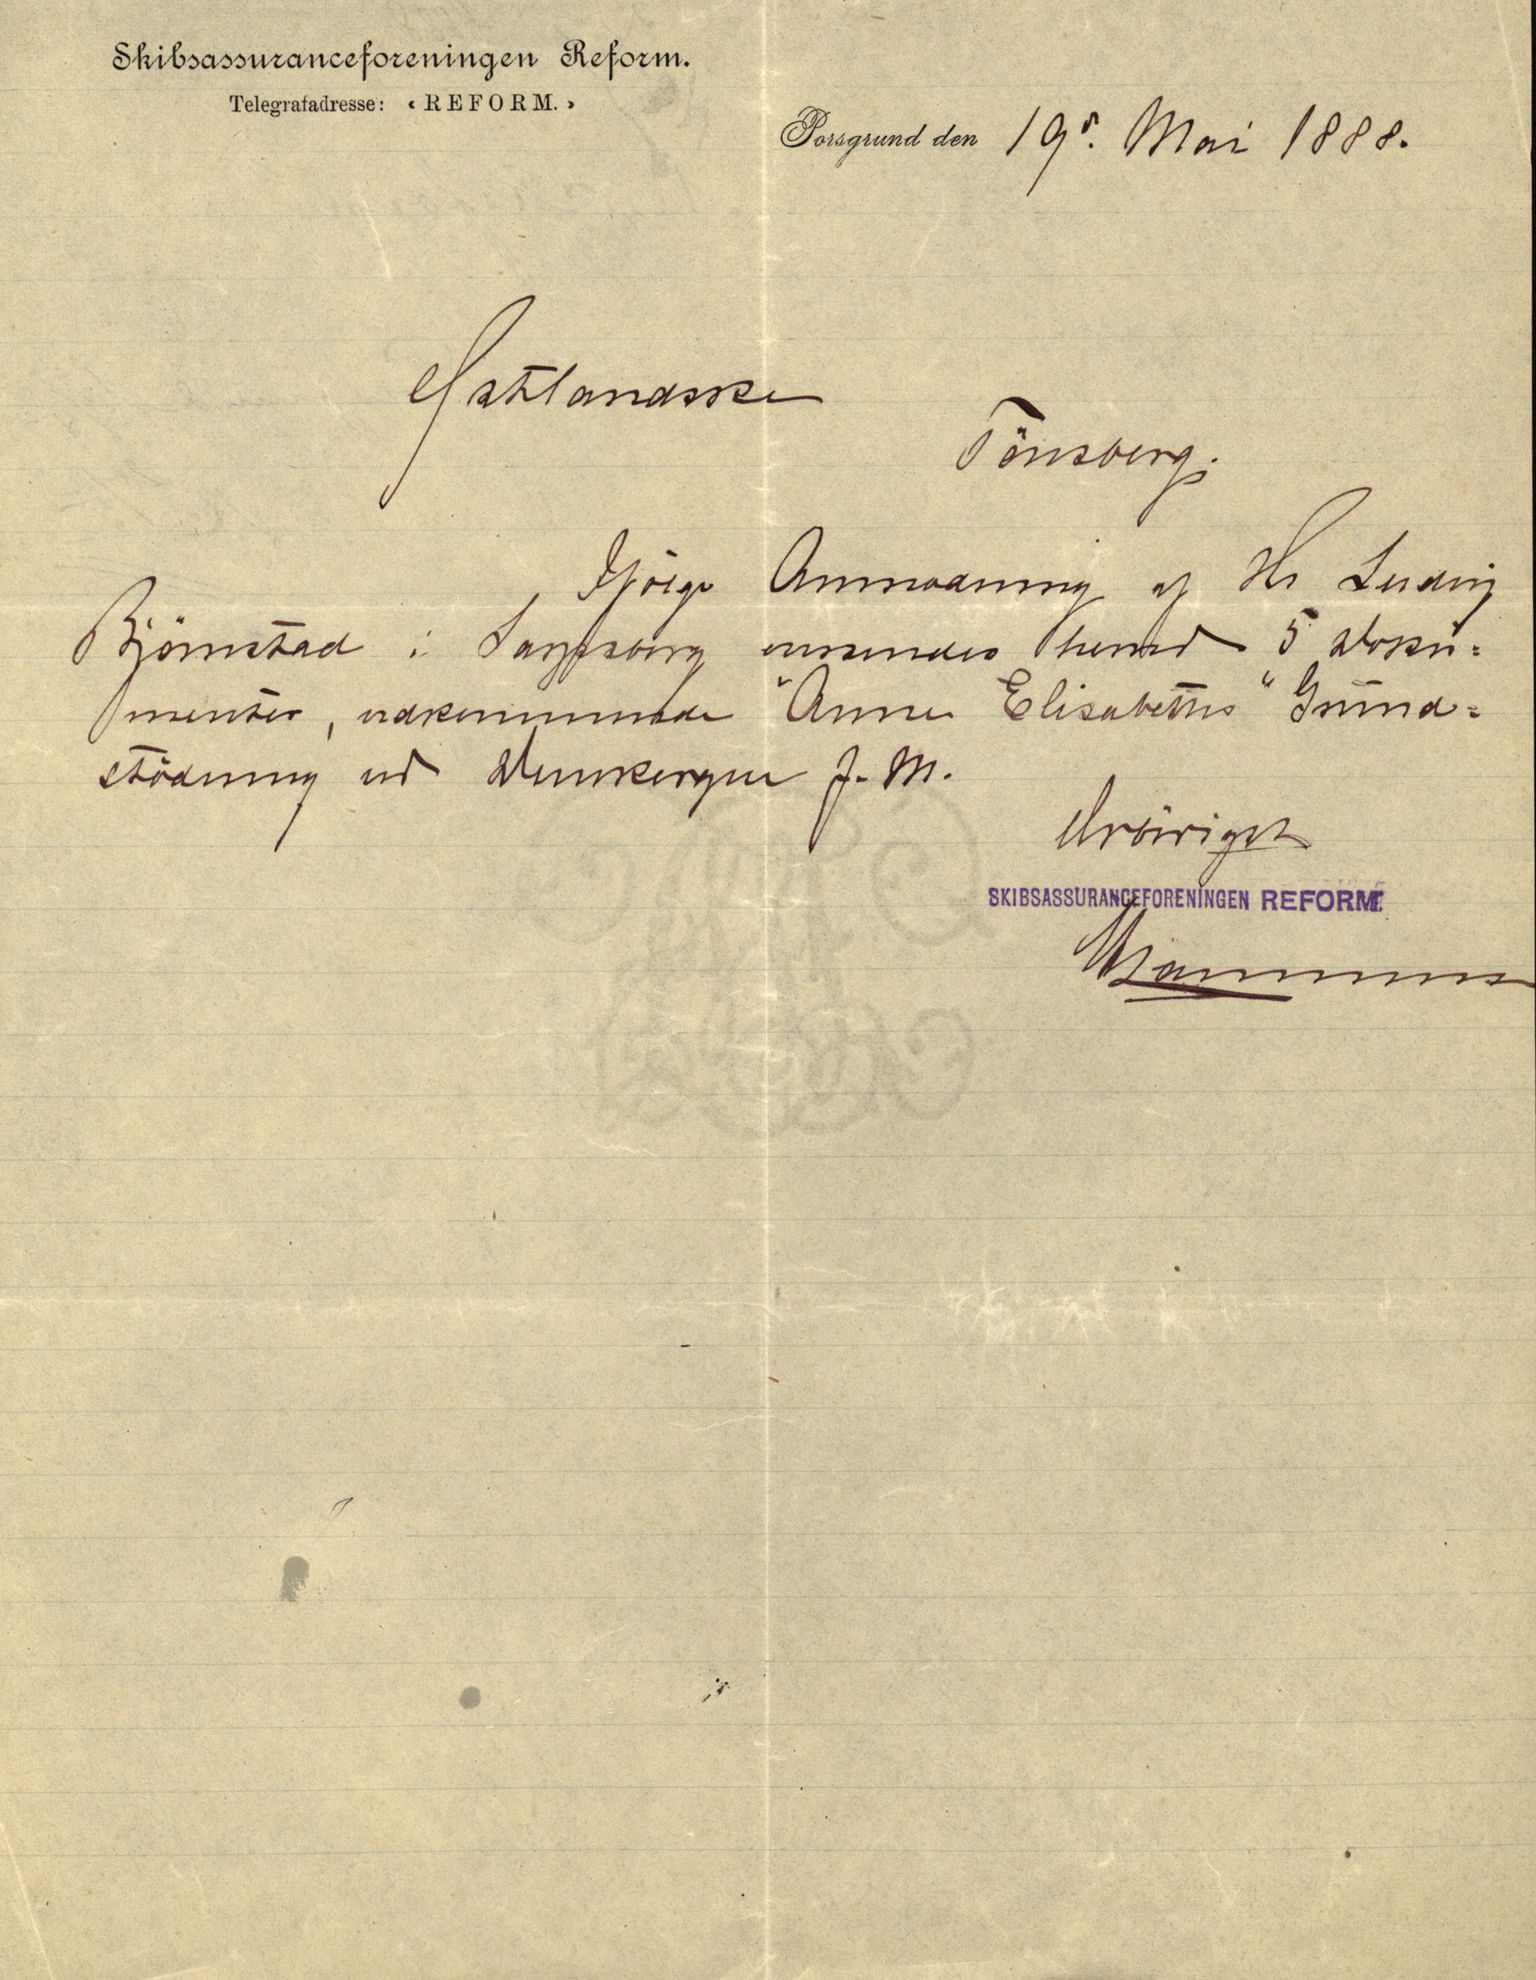 Skibsassuranceforeningen Reform.
Telegrafadresse: ‹ REFORM. ›
Porsgrund den 19de. Mai 1888.
Östlandske
Tönsberg.
Ifölge Anmodning af Hr Ludvig
Björnstad i Sarpsborg oversendes herved 5 Doku=
menter, vedkommende "Anne Elisabeths" Grund=
stödning ved Dunkerque f. M.
Ærbödigst
SKIBSASSURANCEFORENINGEN REFORM.